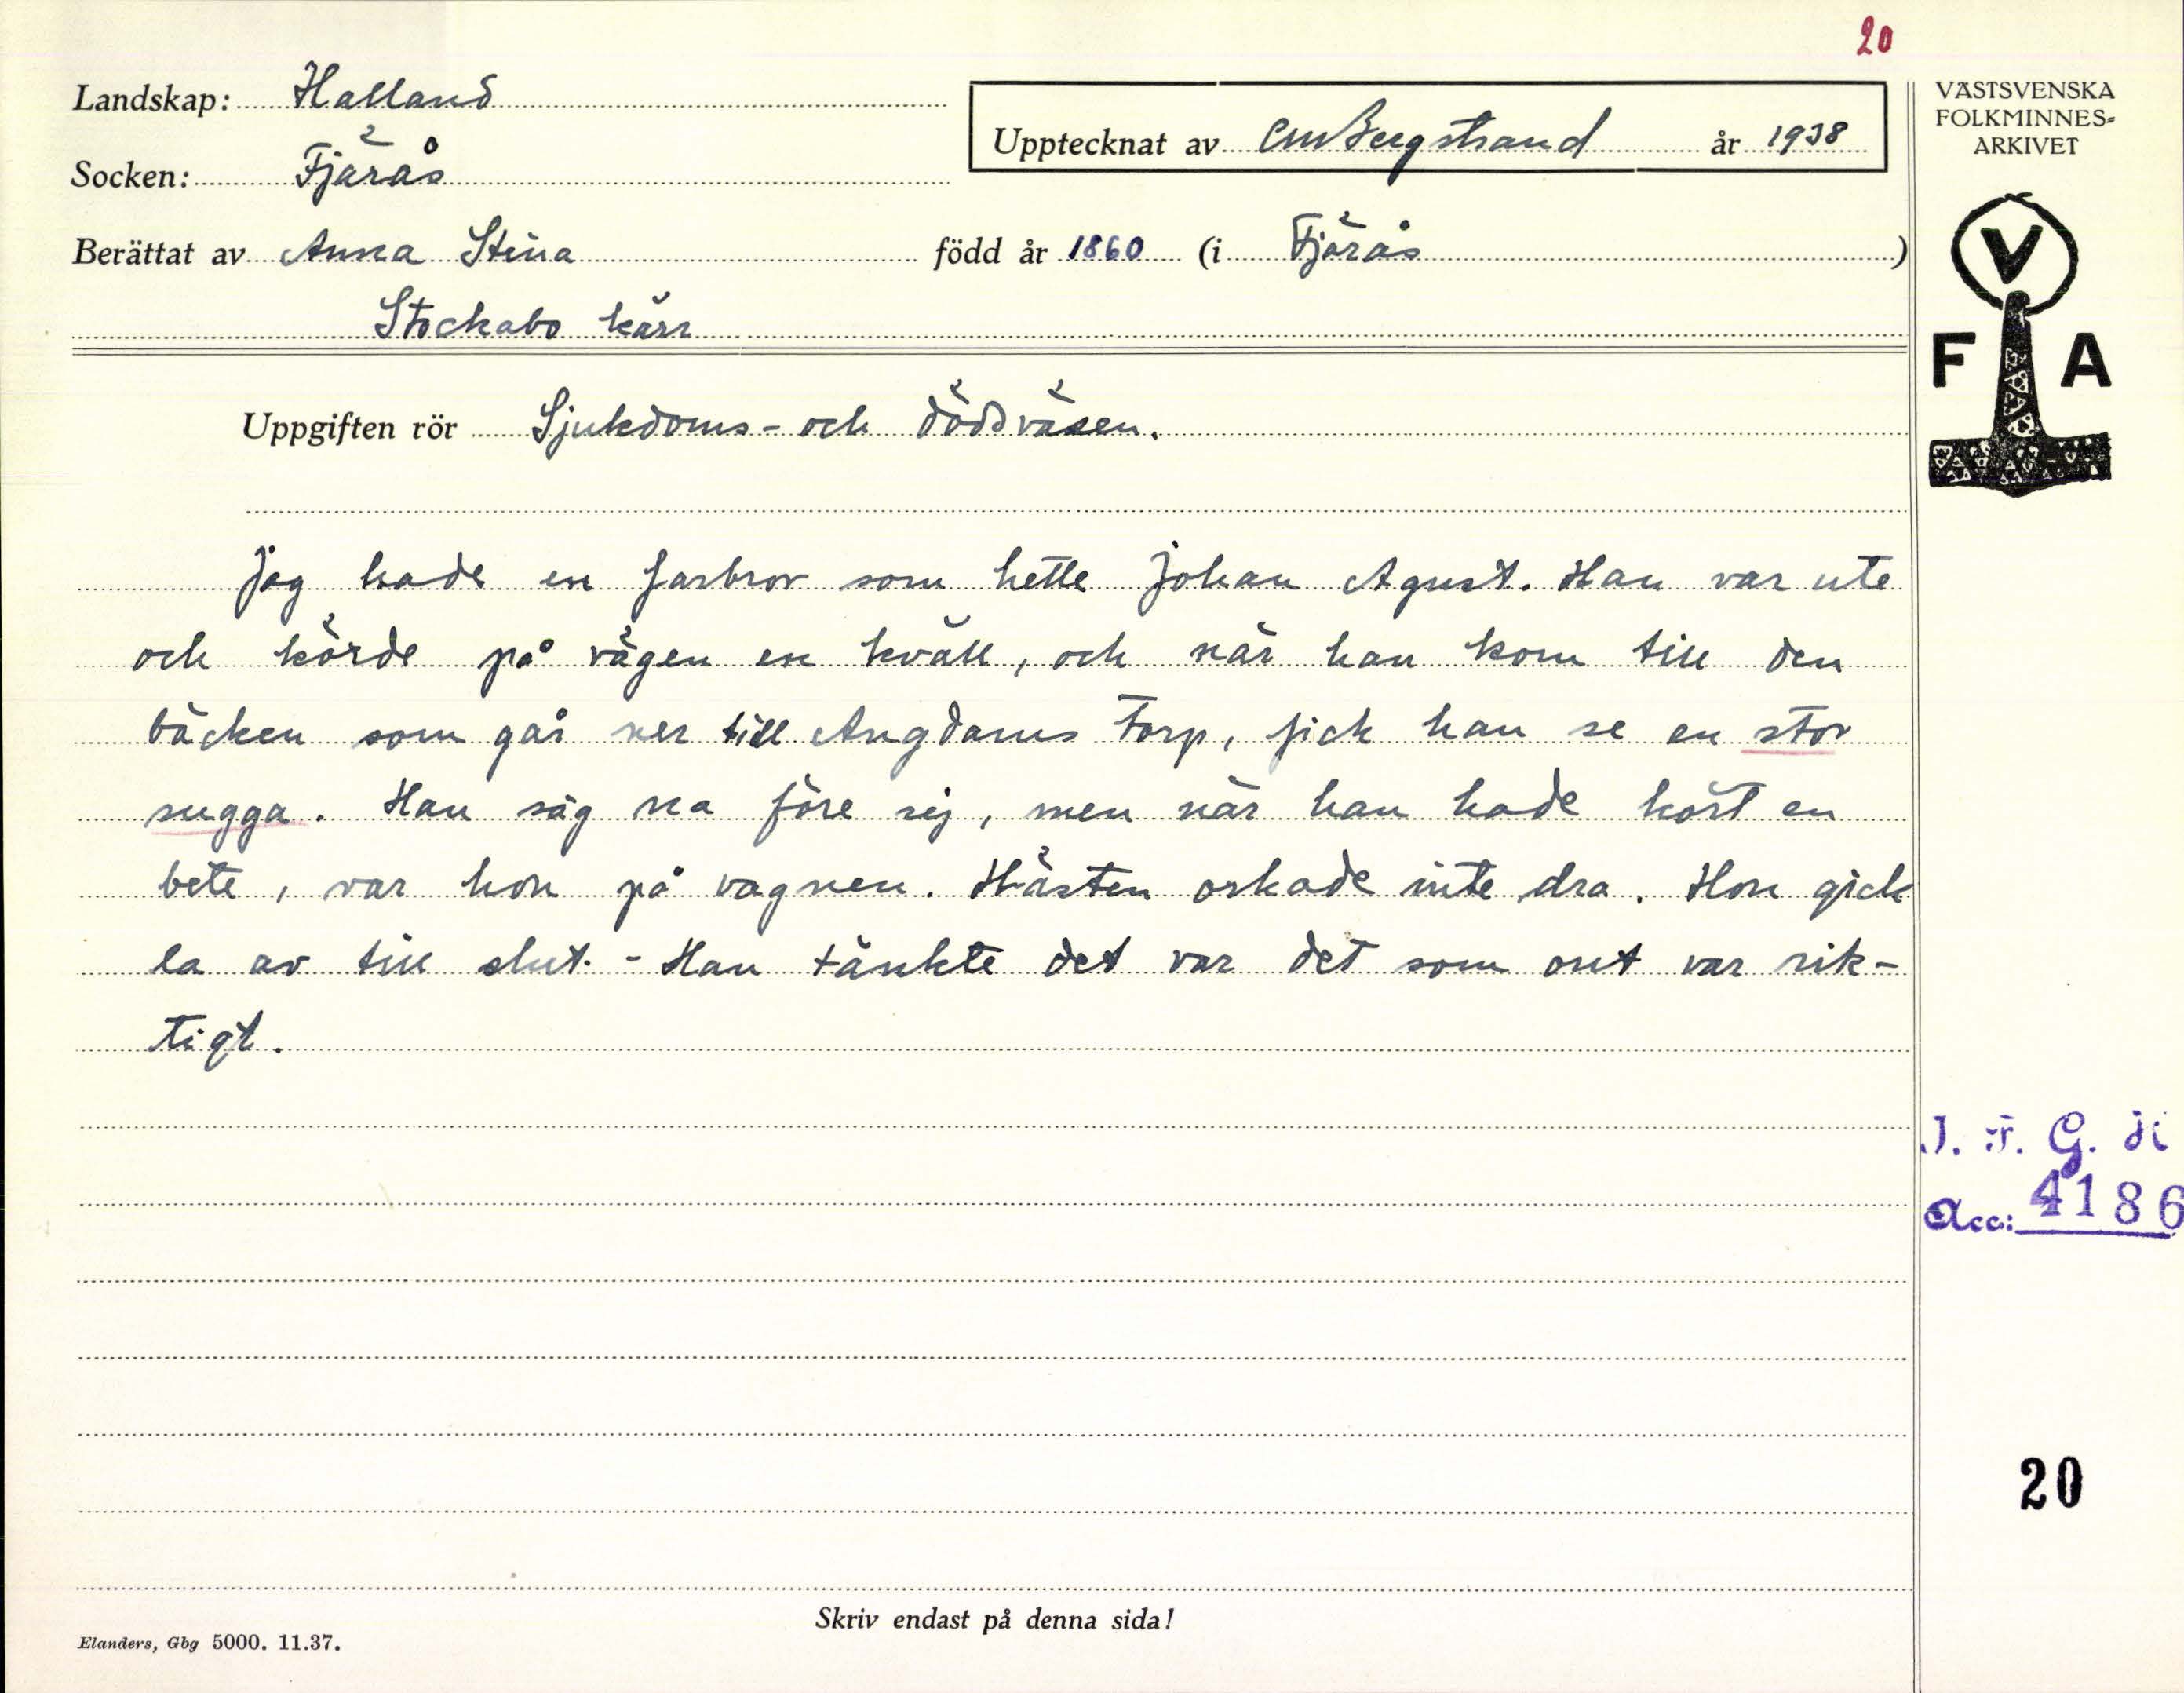 20
Landskap: Halland
Socken: Fjärås
Upptecknat av CMBergstrand år 1938
VÄSTSVENSKA
FOLKMINNES=
ARKIVET
Berättat av Anna Stina född år 1860 (i Fjärås)
Stockabo kärr
V
F A
Uppgiften rör Sjukdoms- och dödsväsen.
Jag hade en farbror som hette Johan Agust. Han var ute
och körde på vägen en kväll, och när han kom till den
bäcken som går ner till Angdams Torp, fick han se en stor
sugga. Han såg na före sej, men när han hade kört en
bete, var hon på vagnen. Hästen orkade inte dra. Hon gick
la av till slut. - Han tänkte det var det som ont var rik-
tigt.
I. F. G. H
Acc: 4186
20
Skriv endast på denna sida!
Elanders, Gbg 5000. 11.37.